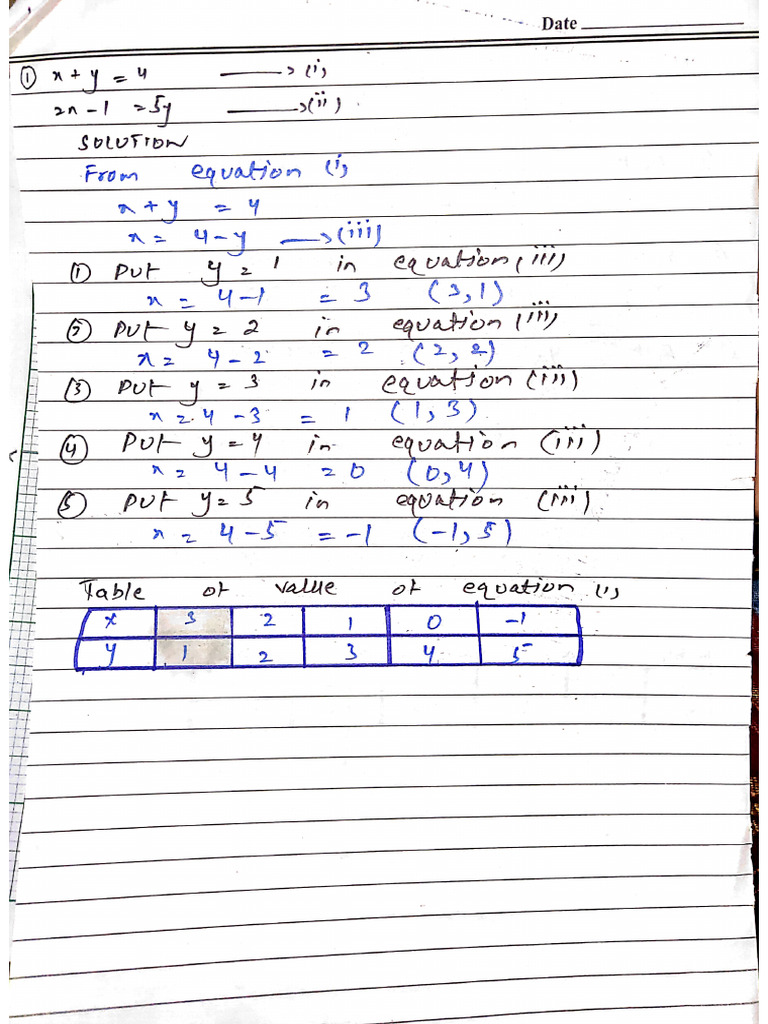 Date
① x + y = 4 ⟶ (i)
2x - 1 = 5y ⟶ (ii)
SOLUTION
From equation (i)
x + y = 4
x = 4 - y ⟶ (iii)
① Put y = 1 in equation (iii)
x = 4 - 1 = 3 (3, 1)
② Put y = 2 in equation (iii)
x = 4 - 2 = 2 (2, 2)
③ Put y = 3 in equation (iii)
x = 4 - 3 = 1 (1, 3)
④ Put y = 4 in equation (iii)
x = 4 - 4 = 0 (0, 4)
⑤ Put y = 5 in equation (iii)
x = 4 - 5 = -1 (-1, 5)
Table of value of equation (i)
x 3 2 1 0 -1
y 1 2 3 4 5